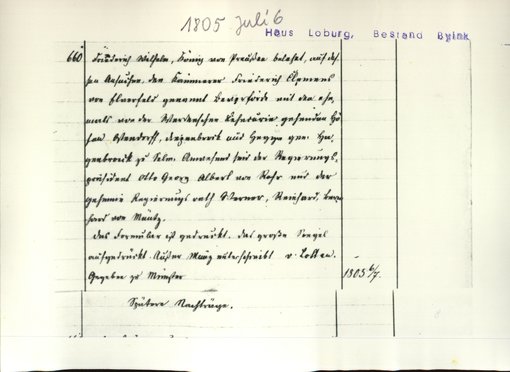 1805 Juli 6
Haus Loburg, Bestand Byink
660 Friederich Wilhelm, König von Preußen belehnt, auf des-
sen Ansuchen, den Kammerer Friederich Clemens
von Elverfeld genannt Beverförde mit den ehe-
mals von der Werdenschen Lehncurie gehenden Hö-
fen Ostendorff, und gen. Ha-
genbrock zu Selm. Anwesend sind der Regierungs-
präsident Otto Georg Albert von Rohr und der
geheime Regierungs rath Werner, Reinhard, Bern-
hard von Müntz.
Das Formular ist gedruckt. Das große Siegel
aufgedrückt. Außer Müntz unterschreibt v.
Gegeben zu Münster 1805 6/7.
Spätere Nachträge.